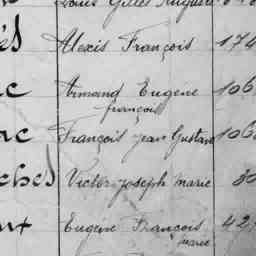 Louis Gilles Auguste
és Alexis François 174
c Armand Eugene 106
françois
ac François Jean Gustave 106
ches Victor joseph marie 30
nt Eugène François 42
marie